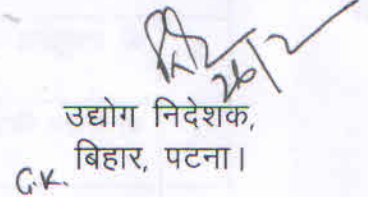 26/2
उद्योग निदेशक,
बिहार, पटना।
G.K.